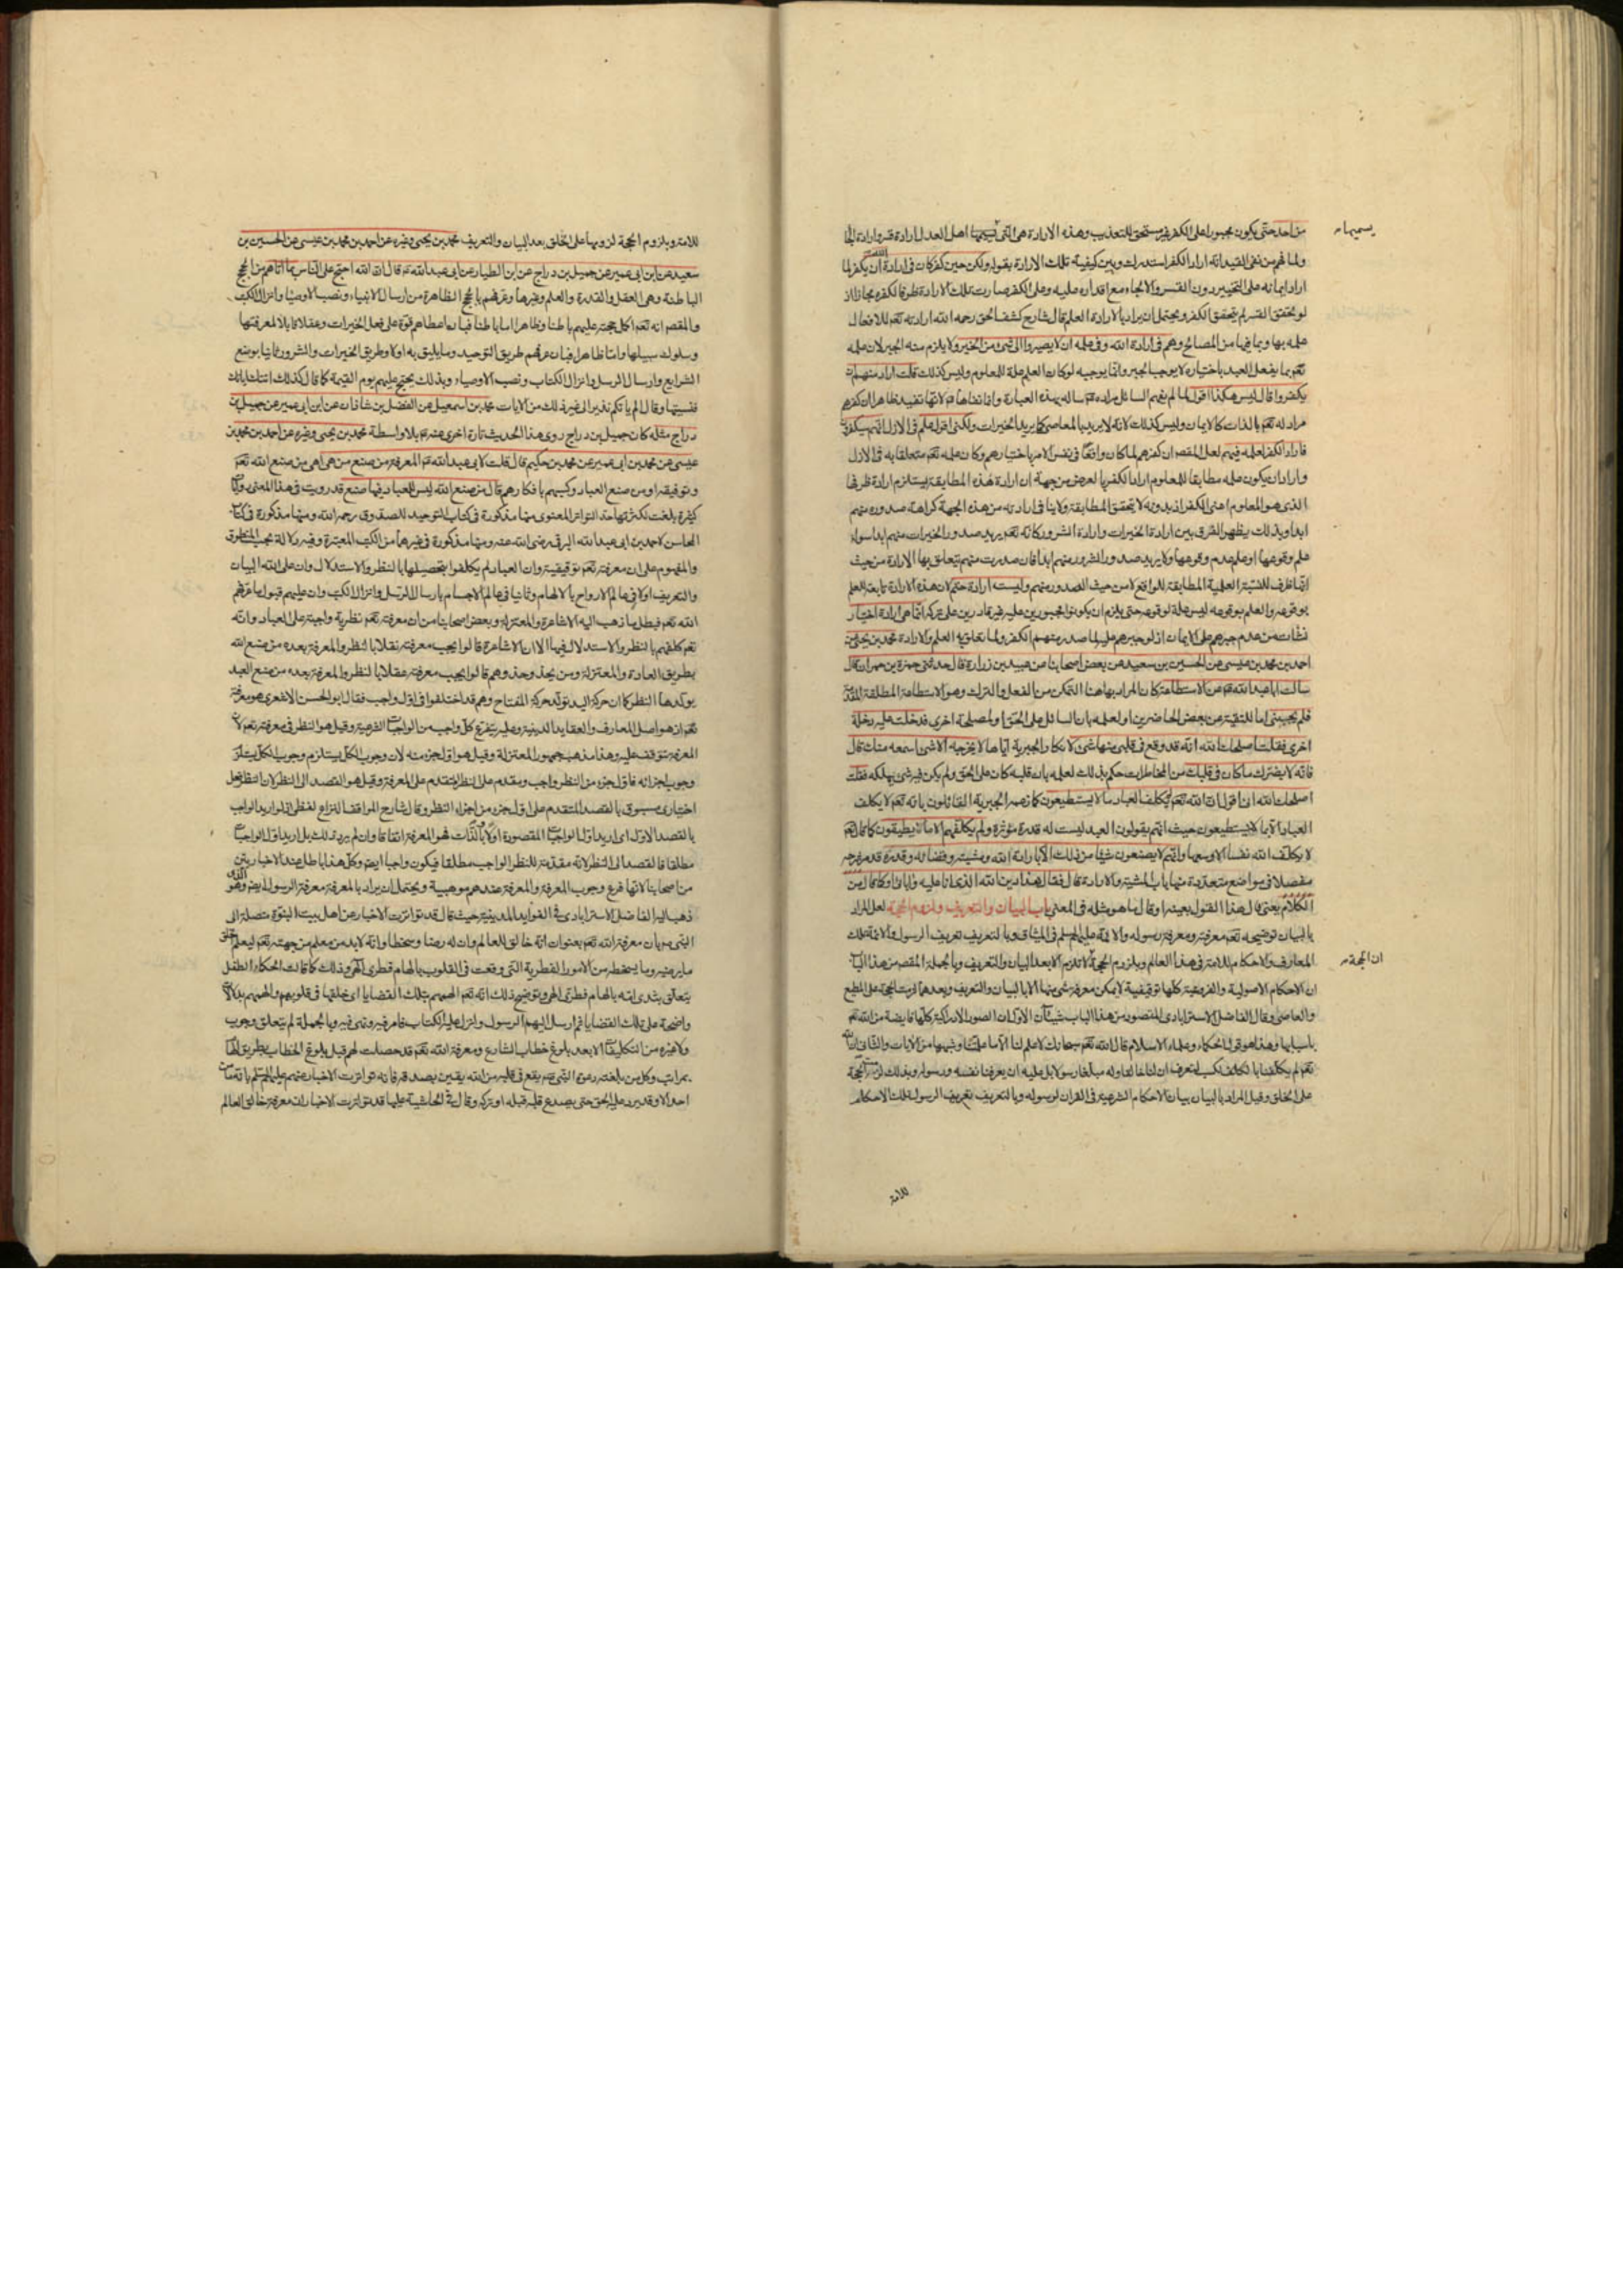 من احد حتى يكون مجبورا على الكفر غير مستحق للتعذيب وهذه الارادة هى التى يسميها اهل العدل ارادة قسر وارادة الجا
ولما فهم من نفى القيد انه اراد الكفر استدرك وبين كيفية تلك الارادة بقوله ولكن حين كفر كان فى ارادة الله ان يكفر لما
اراد ايمانه على التخيير دون القسر والالجاء مع اقداره عليه وعلى الكفر صارت تلك الارادة ظرفا لكفره مجازا اذ
لو تحقق القسر لم يتحقق الكفر ويحتمل ان يراد بالارادة العلم قال شارح كشف الحق رحمه الله ارادته تعم للافعال
علمه بها وبما فيها من المصالح وهم فى ارادة الله وفى علمه ان لا يصيروا الى شىء من الخير ولا يلزم منه الجبر لان علمه
تعم بما يفعل العبد باختياره لا يوجب الجبر وانما يوجبه لو كان العلم علة للمعلوم وليس كذلك قلت اراد منهم ان
يكفروا قال ليس هكذا اقول لما لم يفهم السائل مراده عم ساله بهذه العبارة وانما نفاها عم لانها تفيد ظاهرا ان كفرهم
مراد له تعم بالذات كالايمان وليس كذلك لانه لا يريد المعاصى كما يريد الخيرات ولكنى اقول علم فى الازل انهم سيكفرون
فاراد الكفر لعلمه فيهم لعل المقصود ان كفرهم لما كان واقعا فى نفس الامر باختيارهم وكان علمه تعم متعلقا به فى الازل
واراد ان يكون علمه مطابقا للمعلوم اراد الكفر بالعرض من جهة ان ارادة هذه المطابقة يستلزم ارادة ظرفها
الذى هو المعلوم اعنى الكفر اذ بدونه لا تتحقق المطابقة ولا ينافى ارادته من هذه الجهة كراهة صدوره منهم
ابدا وبذلك يظهر الفرق بين ارادة الخيرات وارادة الشرور كانه تعم يريد صدور الخيرات منهم ابدا سواء
علم وقوعها او علم عدم وقوعها ولا يريد صدور الشرور منهم ابدا فان صدرت منهم يتعلق بها الارادة من حيث
انها ظرف للنسبة العلمية المطابقة للواقع لا من حيث الصدور منهم وليست ارادة حتم لان هذه الارادة تابعة للعلم
بوقوعه والعلم بوقوعه ليس علة لوقوعه حتى يلزم ان يكونوا مجبورين عليه غير قادرين على تركه انما هى ارادة اختيار
نشات من عدم جبرهم على الايمان اذ لو جبرهم عليه لما صدر منهم الكفر ولما تعلق به العلم والارادة محمد بن يحيى عن
احمد بن محمد بن عيسى عن الحسين بن سعيد عن بعض اصحابنا عن عبيد بن زرارة قال حدثنى حمزة بن حمران قال
سالت ابا عبد الله عم عن الاستطاعة كان المراد بها هنا التمكن من الفعل والترك وهو الاستطاعة المطلقة
فلم يجبنى اما للتقية عن بعض الحاضرين او لعلمه بان السائل على الحق او لمصلحة اخرى فدخلت عليه دخلة
اخرى فقلت اصلحك الله انه قد وقع فى قلبى منها شىء لانكار الجبرية اياها لا يخرجه الا شىء اسمعه منك قال
فانه لا يضرك ما كان فى قلبك من المخاطرات حكم بذلك لعلمه بان قلبه كان على الحق ولم يكن فيه شىء يهلكه فقلت
اصلحك الله انى اقول ان الله تعم لم يكلف العباد ما لا يستطيعون كما زعمه الجبرية القائلون بانه تعم لا يكلف
العباد الا بما لا يستطيعون حيث انهم يقولون العبد ليست له قدرة مؤثرة ولم يكلفهم الا ما يطيقون كما قال تعم
لا يكلف الله نفسا الا وسعها وانهم لا يصنعون شيئا من ذلك الا بارادة الله ومشيته وقضائه وقدره قد مر شرحه
مفصلا فى مواضع متعددة منها باب المشية والارادة قال فقال هذا دين الله الذى انا عليه وآبائى او كما قال من
الكلام يعنى قال هذا القول بعينه او قال ما هو مثله فى المعنى باب البيان والتعريف ولزوم الحجة لعل المراد
بالبيان توضيحه تعم معرفته ومعرفة رسوله والائمة عليهم السلم فى الميثاق وبالتعريف تعريف الرسول والائمة تلك
المعارف والاحكام للامة فى هذا العالم وبلزوم الحجة ان الحجة لا تلزم الا بعد البيان والتعريف وبالجملة المقصود من هذا الباب
ان الاحكام الاصولية والفروعية كلها توقيفية لا يمكن معرفة شىء منها الا بالبيان والتعريف وبعدهما لزمت الحجة على المطيع
والعاصى وقال الفاضل الاسترابادى المقصود من هذا الباب شيئان الاول ان الصور الادراكية كلها فايضة من الله تعم
باسبابها وهذا هو قول الحكماء وعلماء الاسلام قال الله تعم سبحانك لا علم لنا الا ما علمتنا وشبهها من الايات والثانى ان الله
تعم لم يكلفنا بالكسب لنعرف ان لنا خالقا وله مبلغا رسولا بل عليه ان يعرفنا نفسه ورسوله وبذلك لزمت الحجة
على الخلق وقيل المراد بالبيان بيان الاحكام الشرعية فى القران لرسوله وبالتعريف تعريف الرسول تلك الاحكام
يسميها
ان الحجة
للامة
للامة وبلزوم الحجة لزومها على الخلق بعد البيان والتعريف محمد بن يحيى وغيره عن احمد بن محمد بن عيسى عن الحسين بن
سعيد عن ابن ابى عمير عن جميل بن دراج عن ابن الطيار عن ابى عبد الله عم قال ان الله احتج على الناس بما اتاهم من الحجج
الباطنة وهى العقل والقدرة والعلم وغيرها وعرفهم بالحجج الظاهرة من ارسال الانبياء ونصب الاوصياء وانزال الكتب
والمقصود انه تعم اكمل حجته عليهم باطنا وظاهرا اما باطنا فبان اعطاهم قوة على فعل الخيرات وعقلا قابلا لمعرفتها
وسلوك سبيلها واما ظاهرا فبان عرفهم طريق التوحيد وما يليق به اولا وطريق الخيرات والشرور ثانيا بوضع
الشرايع وارسال الرسل وانزال الكتاب ونصب الاوصياء وبذلك يحتج عليهم يوم القيمة كما قال كذلك اتتك اياتنا
فنسيتها وقال الم ياتكم نذير الى غير ذلك من الايات محمد بن اسمعيل عن الفضل بن شاذان عن ابن ابى عمير عن جميل بن
دراج مثله كان جميل بن دراج روى هذا الحديث تارة اخرى عنه عم بلا واسطة محمد بن يحيى وغيره عن احمد بن محمد بن
عيسى عن محمد بن ابى عمير عن محمد بن حكيم قال قلت لابى عبد الله عم المعرفة من صنع من هى اهى من صنع الله تعم
وتوفيقه او من صنع العباد وكسبهم بافكارهم قال من صنع الله ليس للعباد فيها صنع قد رويت فى هذا المعنى روايات
كثيرة بلغت لكثرتها حد التواتر المعنوى منها مذكورة فى كتاب التوحيد للصدوق رحمه الله ومنها مذكورة فى كتاب
المحاسن لاحمد بن ابى عبد الله البرقى رضى الله عنه ومنها مذكورة فى غيرهما من الكتب المعتبرة وفيه دلالة بحسب المنطوق
والمفهوم على ان معرفته تعم توقيفية وان العباد لم يكلفوا بتحصيلها بالنظر والاستدلال وان على الله البيان
والتعريف اولا فى عالم الارواح بالالهام وثانيا فى عالم الاجسام بارسال الرسل وانزال الكتب وان عليهم قبول ما عرفهم
الله تعم فبطل ما ذهب اليه الاشاعرة والمعتزلة وبعض اصحابنا من ان معرفته تعم نظرية واجبة على العباد وانه
تعم كلفهم بالنظر والاستدلال فيها الا ان الاشاعرة قالوا يجب معرفته نقلا بالنظر والمعرفة بعده من صنع الله
بطريق العادة والمعتزلة ومن يحذو حذوهم قالوا يجب معرفته عقلا بالنظر والمعرفة بعده من صنع العبد
يولدها النظر كما ان حركة اليد تولد حركة المفتاح وهم قد اختلفوا فى اول واجب فقال ابو الحسن الاشعرى هو معرفة
تعم اذ هو اصل المعارف والعقايد الدينية وعليه يتفرع كل واجب من الواجبات الشرعية وقيل هو النظر فى معرفته تعم لان
المعرفة تتوقف عليه وهذا مذهب جمهور المعتزلة وقيل هو اول جزء منه لان وجوب الكل يستلزم وجوب
وجوب اجزائه فاول جزء من النظر واجب ومقدم على النظر المتقدم على المعرفة وقيل هو القصد الى النظر لان النظر فعل
اختيارى مسبوق بالقصد المتقدم على اول جزء من اجزاء النظر وقال شارح المواقف النزاع لفظى اذ لو اريد الواجب
بالقصد الاول اى اريد اول الواجبات المقصودة اولا وبالذات فهو المعرفة اتفاقا وان لم يرد ذلك بل اريد اول الواجبات
مطلقا فالقصد الى النظر لانه مقدمة للنظر الواجب مطلقا فيكون واجبا ايضا وكل هذا باطل عند الاخباريين
من اصحابنا لانها فرع وجوب المعرفة والمعرفة عندهم موهبية ويحتمل ان يراد بالمعرفة معرفة الرسول ايضا وهو الذى
ذهب اليه الفاضل الاسترابادى فى الفوايد المدنية حيث قال قد تواترت الاخبار عن اهل بيت النبوة متصلة الى
النبى ص بان معرفة الله تعم بعنوان انه خالق للعالم وان له رضا وسخطا وانه لا بد من معلم من جهته تعم ليعلم الخلق
ما يرضيه وما يسخطه من الامور الفطرية التى وقعت فى القلوب بالهام فطرى الهى وذلك كما قالت الحكماء الطفل
يتعلق بثدى امه بالهام فطرى الهى وتوضيح ذلك انه تعم الهمهم بتلك القضايا اى خلقها فى قلوبهم والهمهم بدلالات
واضحة على تلك القضايا ثم ارسل اليهم الرسول وانزل عليه الكتاب فامر فيه ونهى فيه وبالجملة لم يتعلق وجوب
ولا غيره من التكليفات الا بعد بلوغ خطاب الشارع ومعرفة الله تعم قد حصلت لهم قبل بلوغ الخطاب بطريق الهام
بمراتب وكل من بلغته دعوة النبى ص يقع فى قلبه من الله يقين بصدقه فانه تواترت الاخبار عنهم عليهم السلم بانه ما من
احد الا وقد يرد عليه الحق حتى يصدع قلبه قبله او تركه وقال فى الحاشية عليها قد تواترت الاخبار ان معرفة خالق العالم